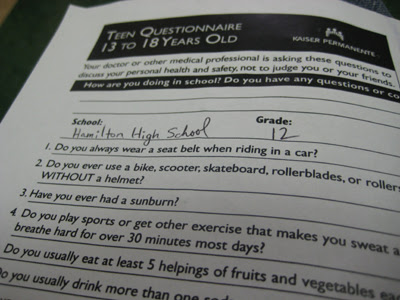 TEEN QUESTIONNAIRE
13 TO 18 YEARS OLD
KAISER PERMANENTE
Your doctor or other medical professional is asking these questions to
discuss your personal health and safety, not to judge you or your friends.
How are you doing in school? Do you have any questions or
School: Grade:
Hamilton High School 12
1. Do you always wear a seat belt when riding in a car?
2. Do you ever use a bike, scooter, skateboard, rollerblades, or
WITHOUT a helmet?
3. Have you ever had a sunburn?
4. Do you play sports or get other exercise that makes you sweat
breathe hard for over 30 minutes most days?
Do you usually eat at least 5 helpings of fruits and vegetables
Do you usually drink more than one